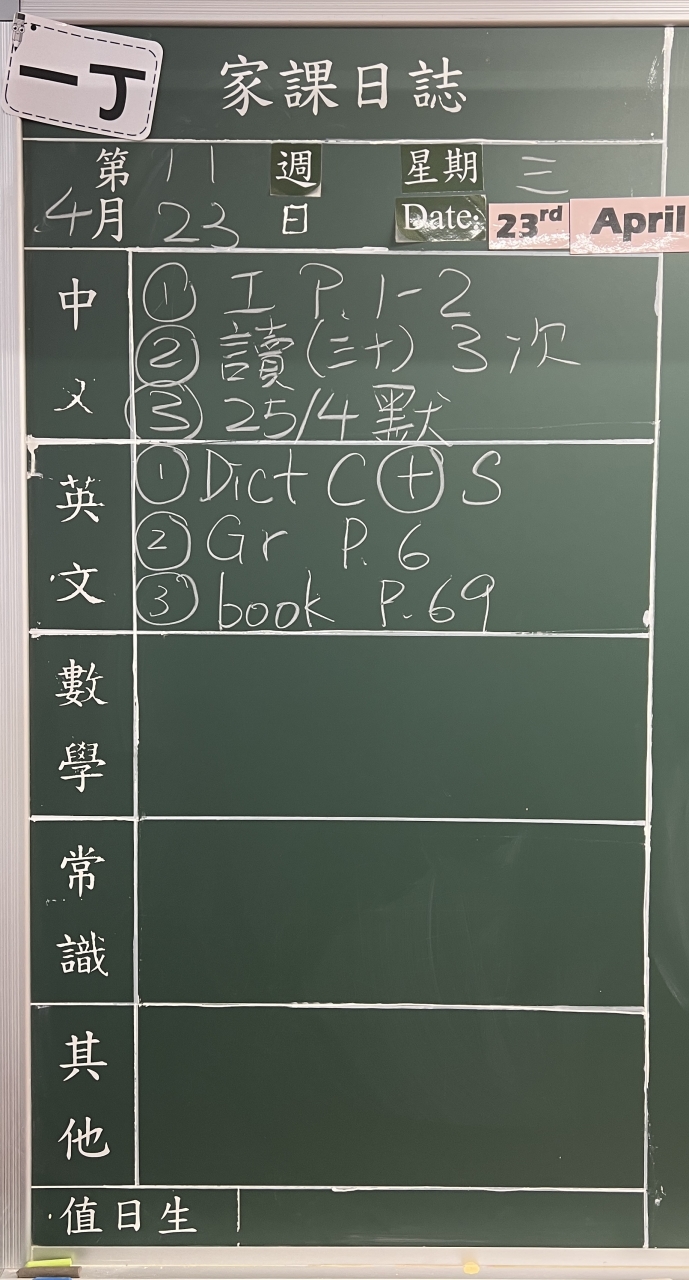 一丁
家課日誌
第 11 週 星期 三
4月 23 日 Date: 23rd April
中文
① 工 P.1-2
② 讀(三十) 3次
③ 25/4 默
英文
① Dict C ⊕ S
② Gr P.6
③ book P.69
數學
常識
其他
值日生